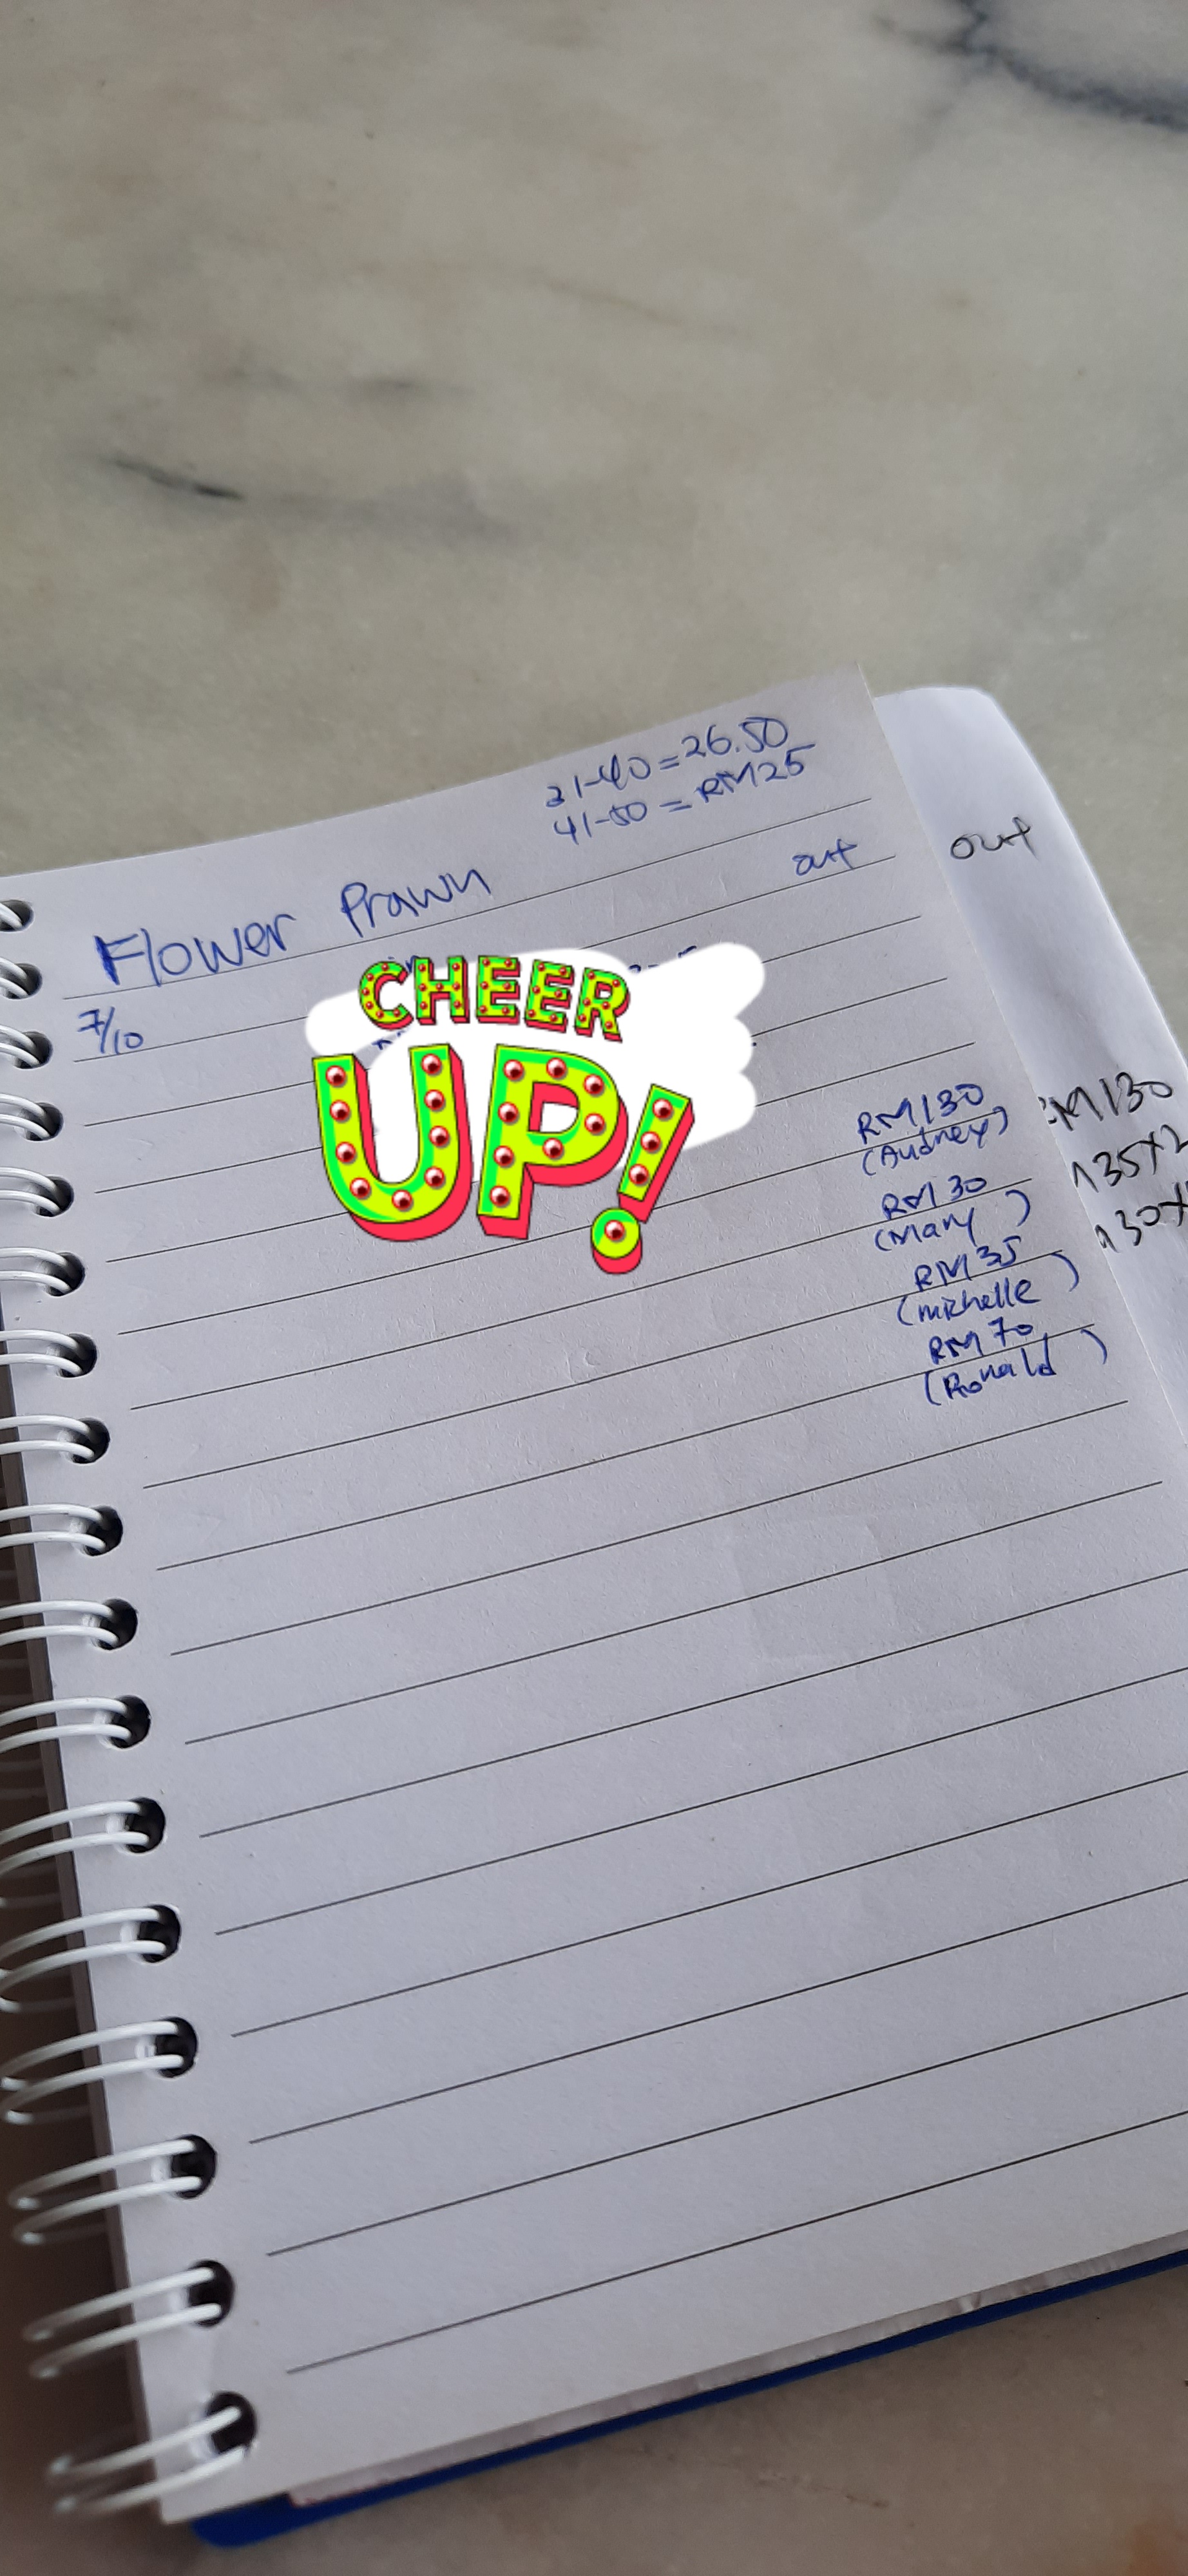 31-40 = 26.50
41-50 = RM25
Flower Prawn
out
out
7/10
CHEER
UP!
RM130
(Audrey)
RM30
(Mary)
RM35
(michelle)
RM70
(Ronald)
M130
35x2
30x